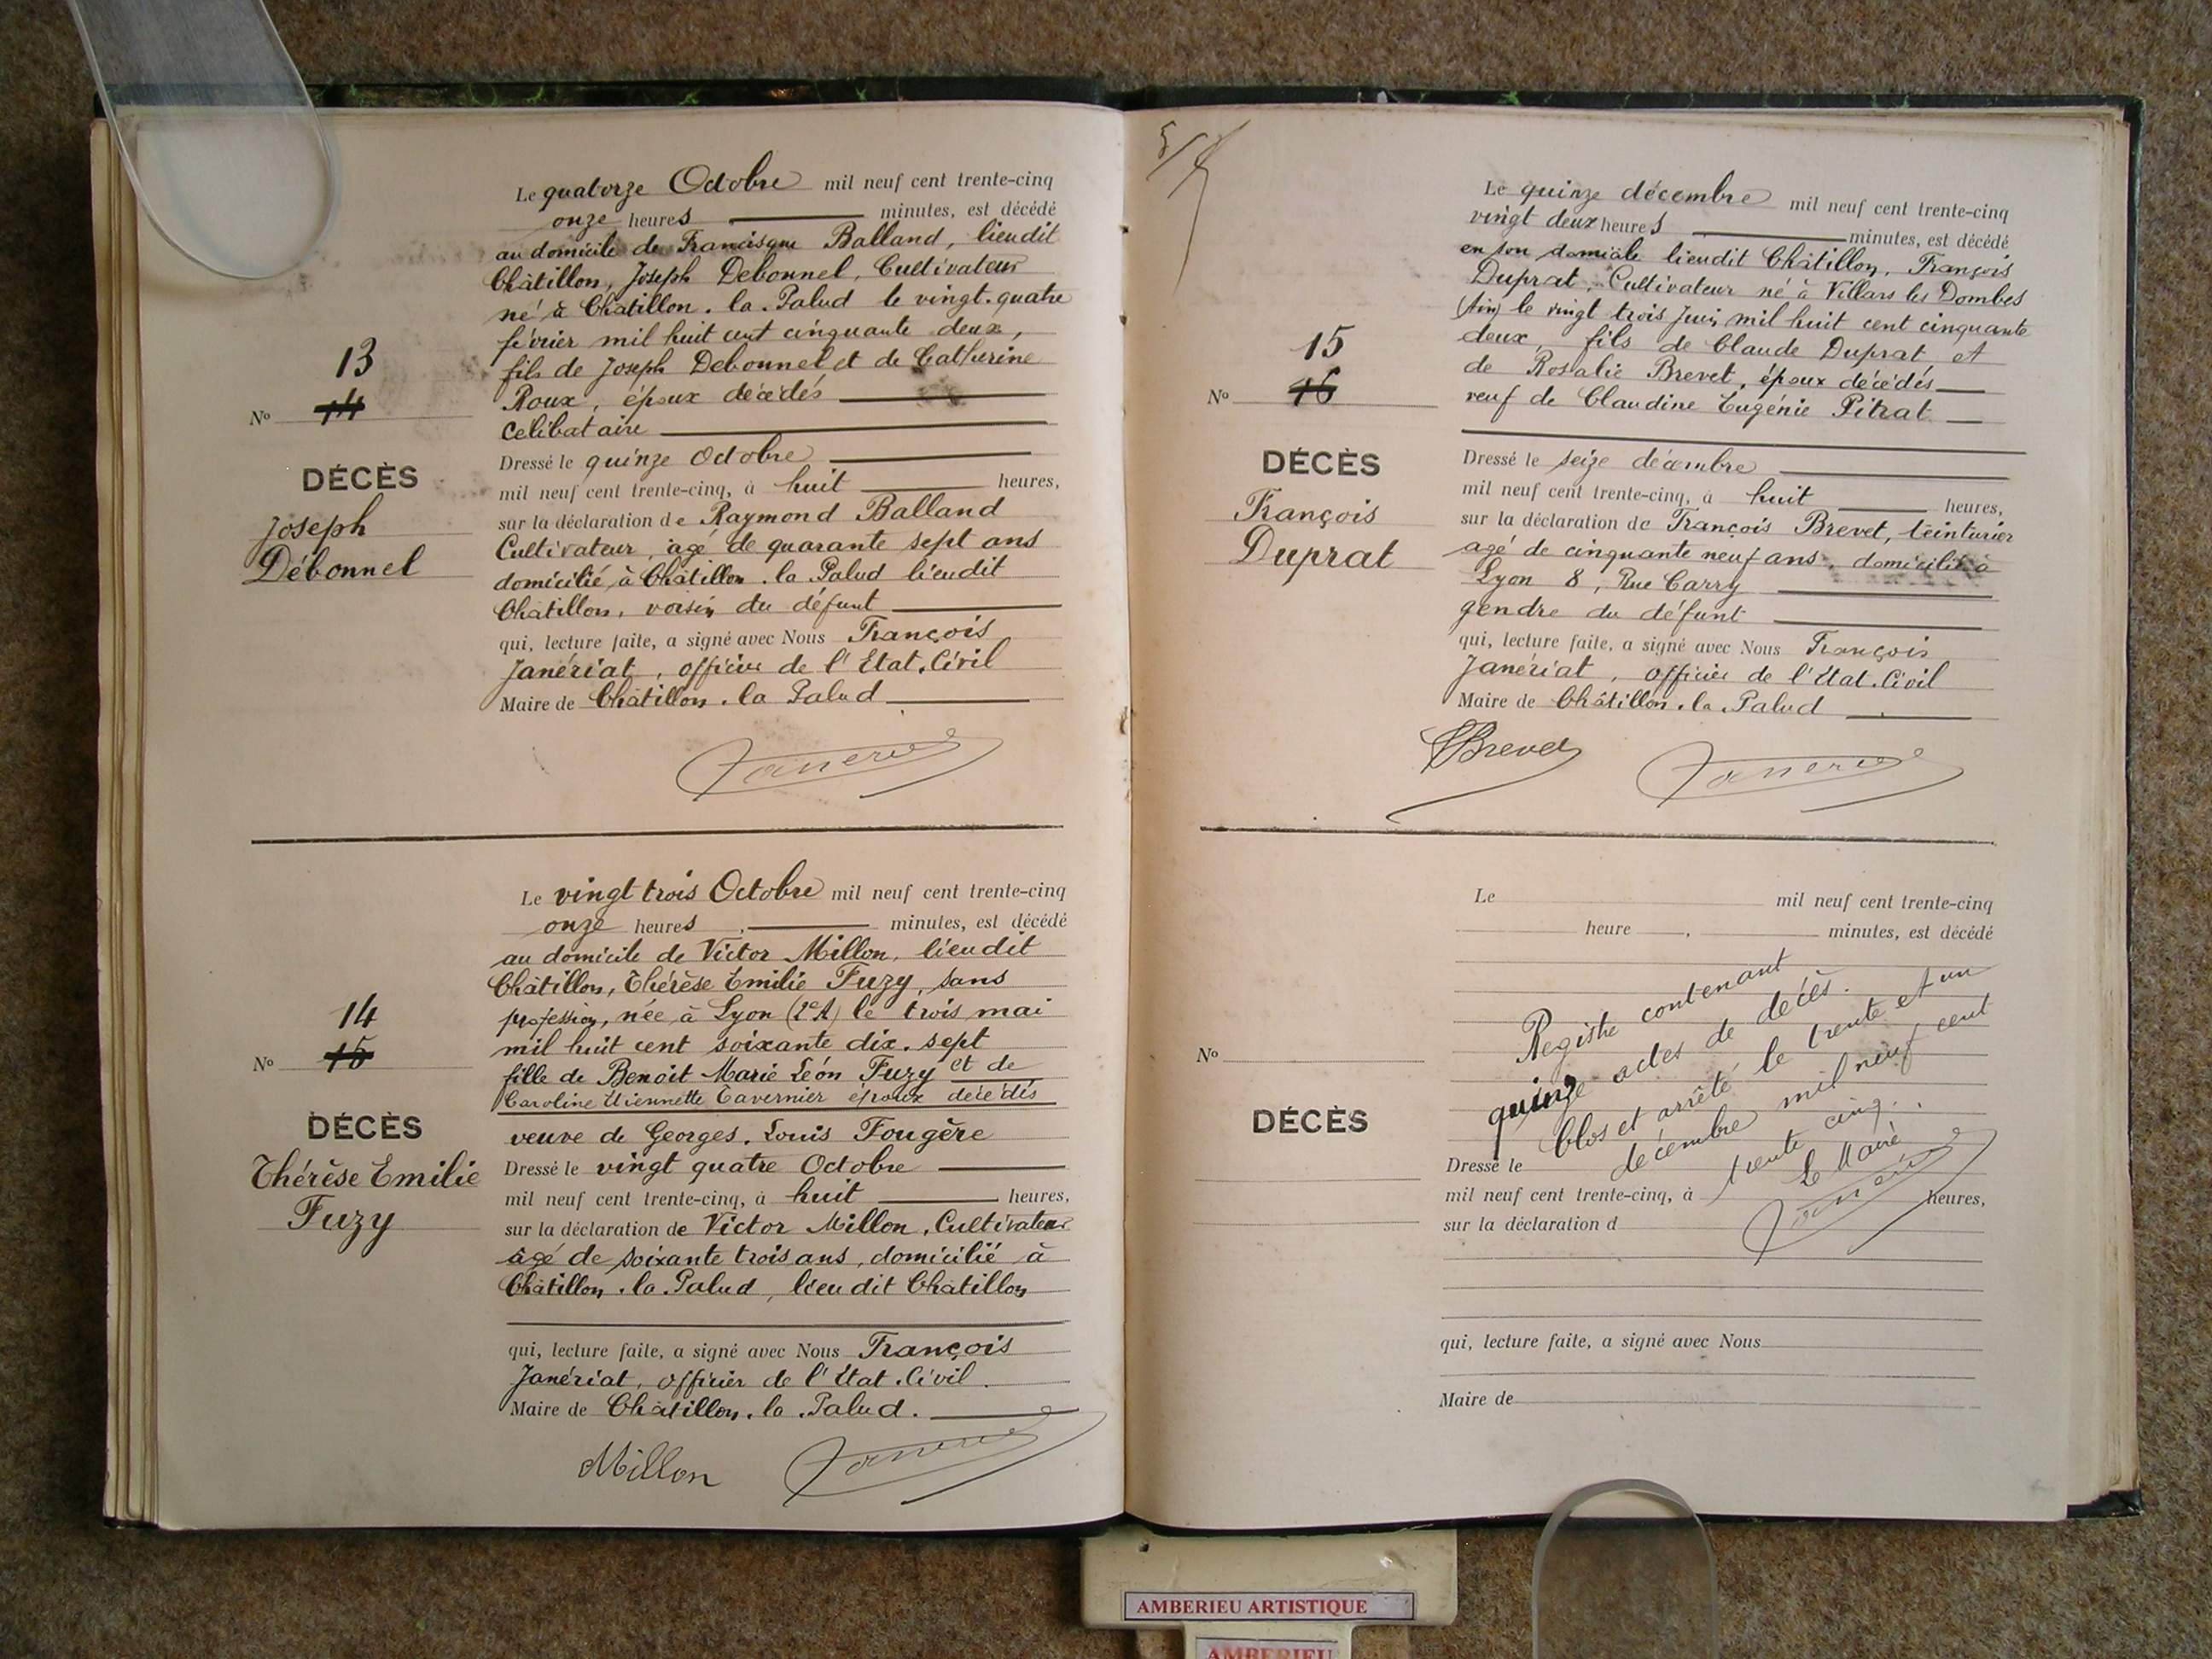 Le quatorze Octobre mil neuf cent trente-cinq
onze heures minutes, est décédé
au domicile de Francisque Balland, lieudit
Châtillon, Joseph Debonnel, Cultivateur
né à Châtillon. la. Palud le vingt. quatre
février mil huit cent cinquante deux,
fils de Joseph Debonnel et de Catherine
Roux, époux décédés
celibataire
13
No 14
DÉCÈS
Joseph
Débonnel
Dressé le quinze Octobre
mil neuf cent trente-cinq, à huit heures,
sur la déclaration de Raymond Balland
Cultivateur, âgé de quarante sept ans
domicilié à Châtillon. la Palud lieudit
Châtillon, voisin du défunt
qui, lecture faite, a signé avec Nous François
Janériat, officier de l'Etat. Civil
Maire de Châtillon. la Palud
Le vingt trois Octobre mil neuf cent trente-cinq
onze heures, minutes, est décédé
au domicile de Victor Millon, lieudit
Châtillon, Thérèse Emilie Fuzy, sans
profession, née à Lyon (2eA) le trois mai
mil huit cent soixante dix. sept
fille de Benoit Marie Léon Fuzy et de
Caroline Etiennette Tavernier époux décédés
veuve de Georges. Louis Fougère
14
No 15
DÉCÈS
Thérèse Emilie
Fuzy
Dressé le vingt quatre Octobre
mil neuf cent trente-cinq, à huit heures,
sur la déclaration de Victor Millon, Cultivateur
âgé de soixante trois ans, domicilié à
Châtillon. la Palud, lieu dit Châtillon
qui, lecture faite, a signé avec Nous François
Janériat, officier de l'Etat. Civil
Maire de Châtillon. la. Palud.
Millon
Le quinze décembre mil neuf cent trente-cinq
vingt deux heures minutes, est décédé
en son domicile lieudit Châtillon, François
Duprat, Cultivateur né à Villars les Dombes
(Ain) le vingt trois Juin mil huit cent cinquante
deux, fils de Claude Duprat et
de Rosalie Brevet, époux décédés
veuf de Claudine Eugénie Pitrat
15
No 16
DÉCÈS
François
Duprat
Dressé le seize décembre
mil neuf cent trente-cinq, à huit heures,
sur la déclaration de François Brevet, teinturier
agé de cinquante neuf ans, domicilié à
Lyon 8, Rue Carry
gendre du défunt
qui, lecture faite, a signé avec Nous François
Janériat, officier de l'Etat. Civil
Maire de Châtillon. la. Palud
Brevet
Le mil neuf cent trente-cinq
heure , minutes, est décédé
Registre contenant
quinze actes de décès.
Clos et arrêté le trente et un
décembre mil neuf cent
trente cinq.
Le Maire
No
DÉCÈS
Dressé le
mil neuf cent trente-cinq, à heures,
sur la déclaration d
qui, lecture faite, a signé avec Nous
Maire de
AMBERIEU ARTISTIQUE
AMBERIEU